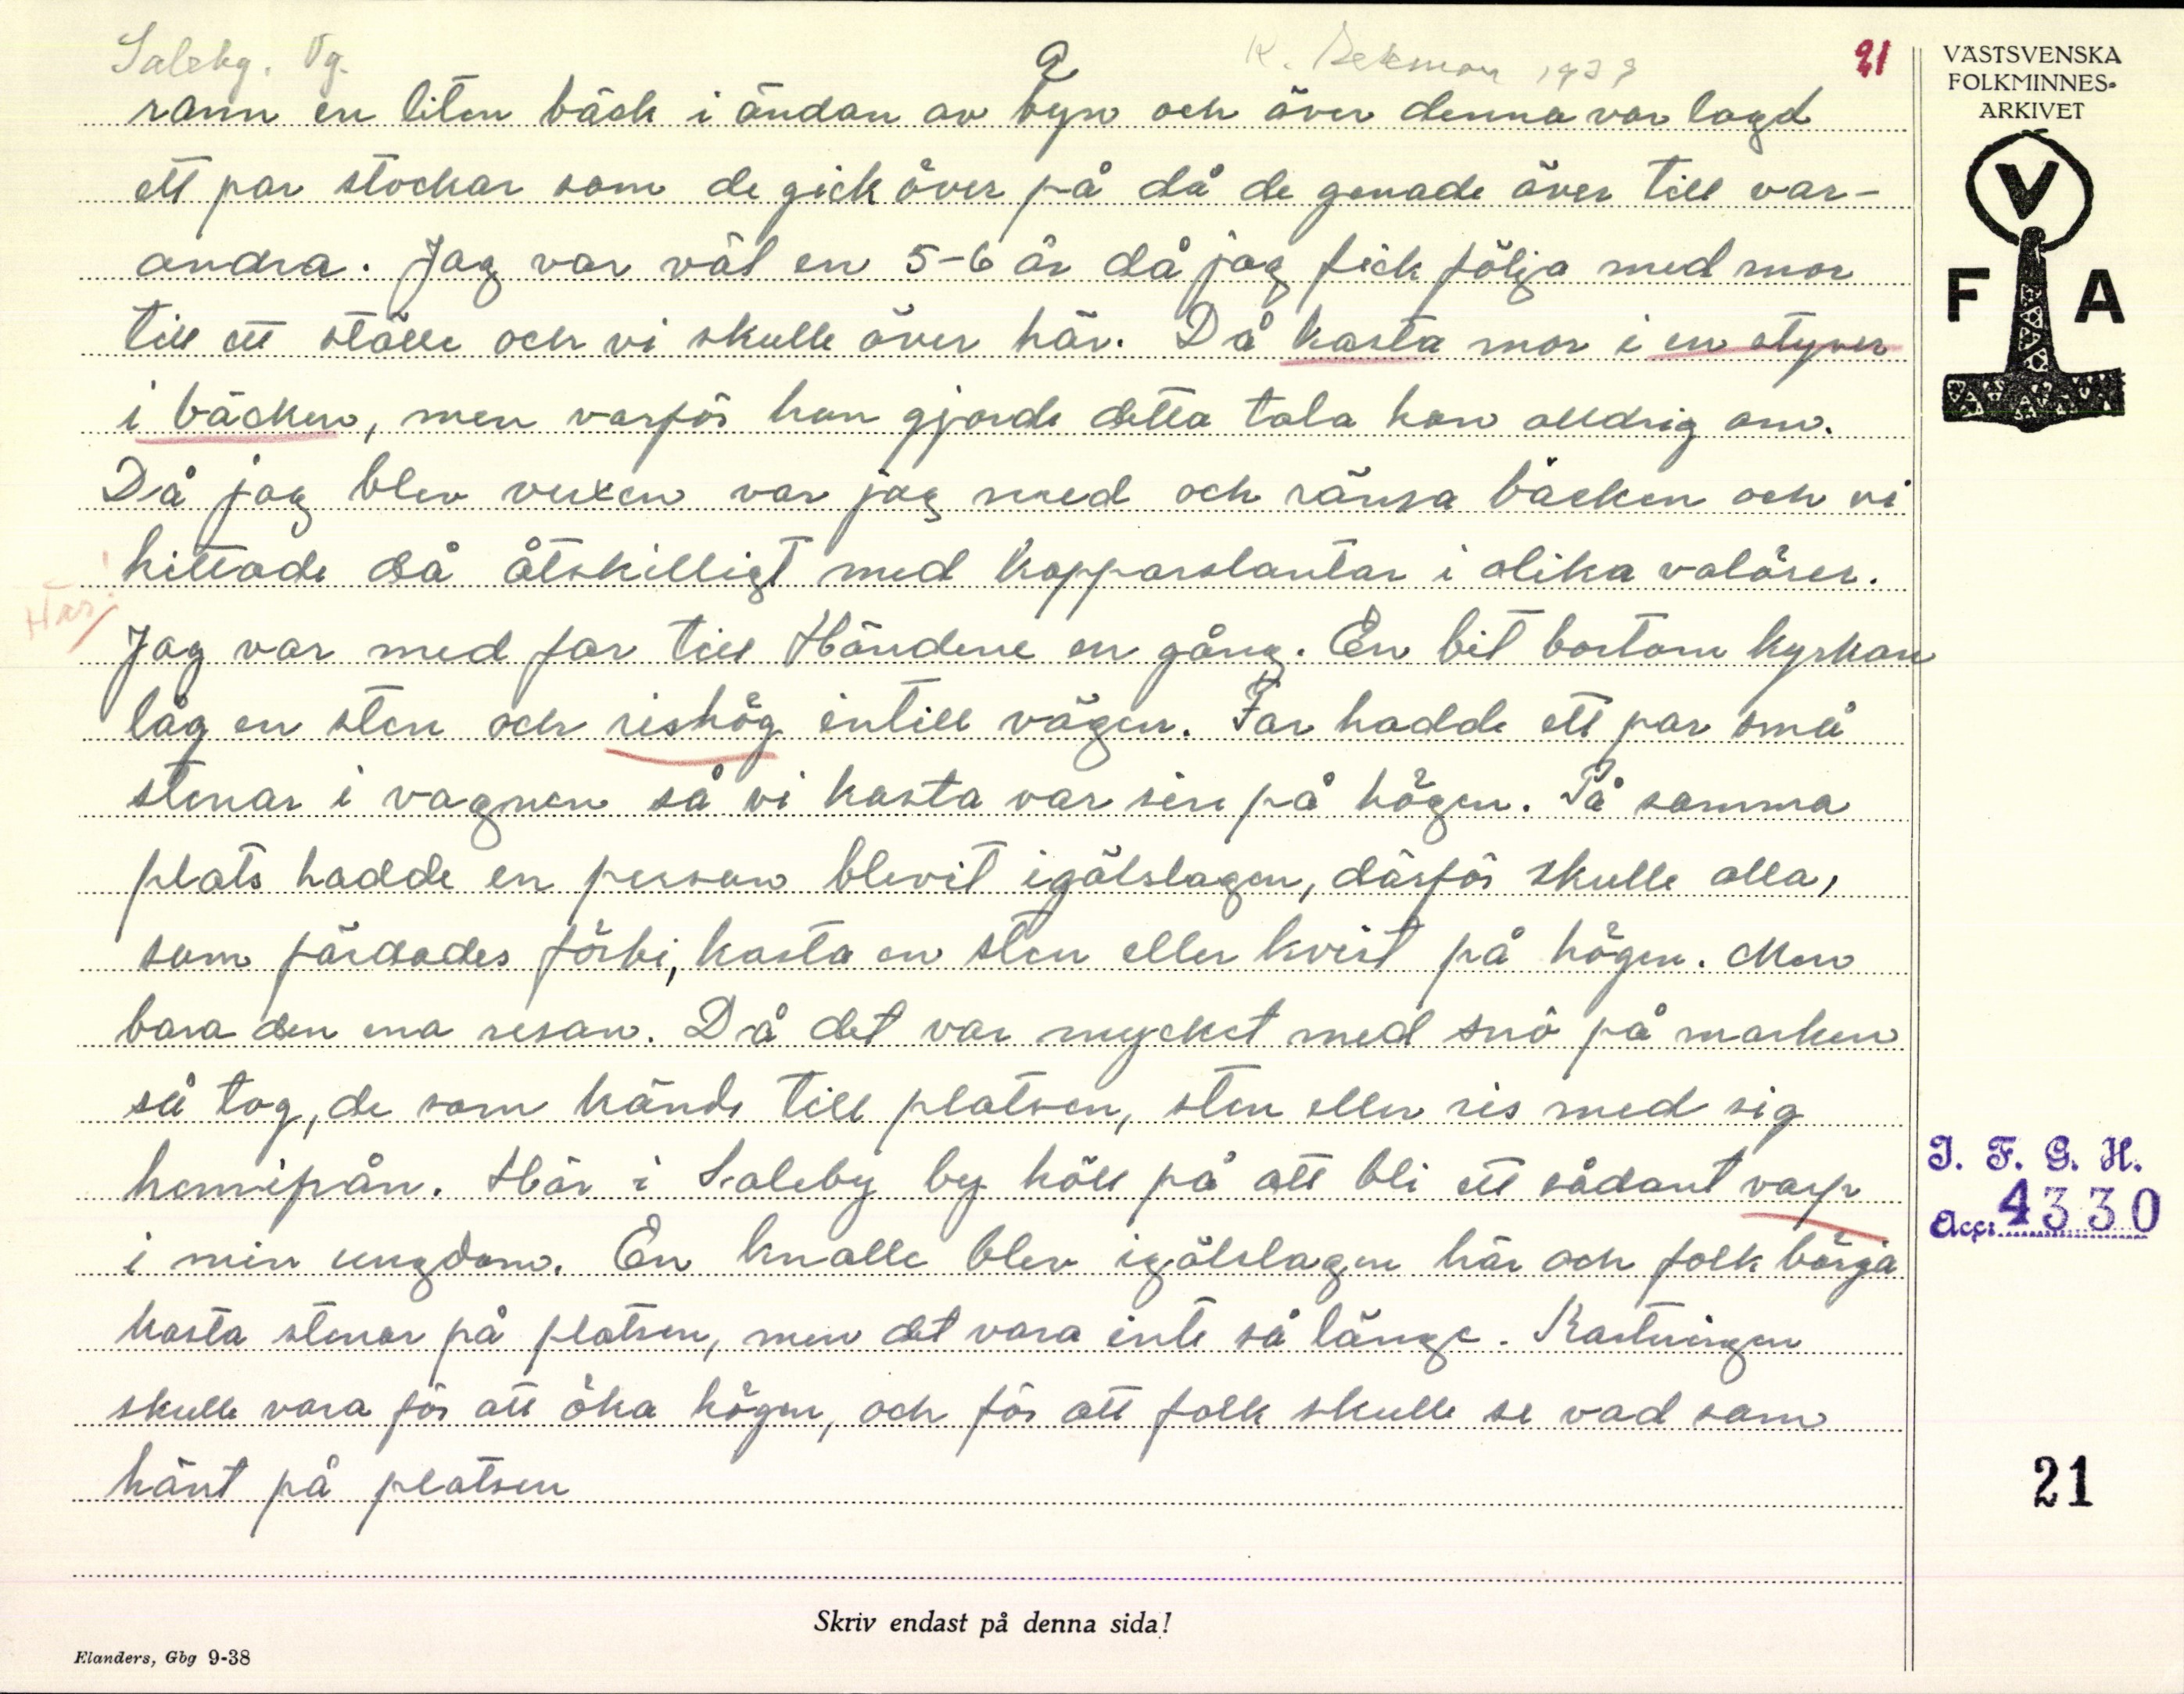 Saleby. Vg.
2
K. Bekman 1939
21
VÄSTSVENSKA
FOLKMINNES-
ARKIVET
V
F A
rann en liten bäck i ändan av byn och över denna var lagd
ett par stockar som de gick över på då de genade över till var-
andra. Jag var väl en 5-6 år då jag fick följa med mor
till ett ställe och vi skulle över här. Då kasta mor i en styver
i bäcken, men varför hon gjorde detta tala hon alldrig om.
Då jag blev vuxen var jag med och ränsa bäcken och vi
hittade då åtskilligt med kopparslantar i olika valörer.
Här!
Jag var med far till Händene en gång. En bit bortom kyrkan
låg en sten och rishög intill vägen. Far hadde ett par små
stenar i vagnen så vi kasta var sin på högen. På samma
plats hadde en person blevit igälslagen, därför skulle alla,
som färdades förbi, kasta en sten eller kvist på högen. Men
bara den ena resan. Då det var mycket med snö på marken
så tog, de som kände till platsen, sten eller ris med sig
hemifrån. Här i Saleby by höll på att bli ett sådant varp
i min ungdom. En knalle blev igälslagen här och folk börja
kasta stenar på platsen, men det vara inte så länge. Kastningen
skulle vara för att öka högen, och för att folk skulle se vad som
hänt på platsen
I. F. G. H.
Acc: 4330
21
Skriv endast på denna sida!
Elanders, Gbg 9-38